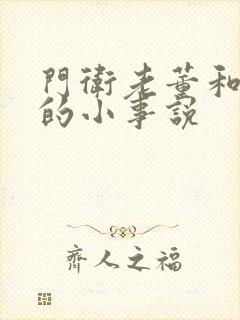 門衛老董和
的小事說
齊人之福